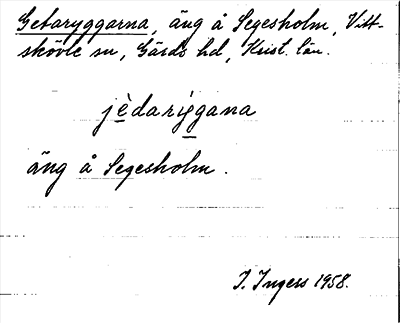 Getaryggarna, äng å Segesholm, Vitt-
skövle sn, Gärds hd, Krist. län.
jèdariggana
äng å Segesholm.
I. Ingers 1958.